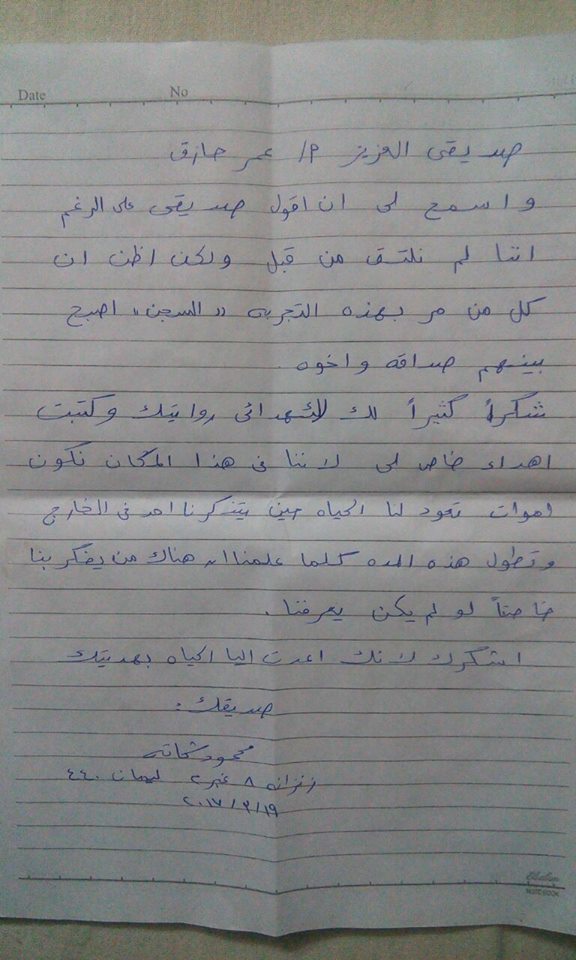 Date No
صديقى العزيز م/ عمر حازق
واسمح لى ان اقول صديقى على الرغم
اننا لم نلتق من قبل ولكن اظن ان
كل من مر بهذه التجربه "السجن" اصبح
بينهم صداقه واخوه.
شكراً كثيراً لك لأهدائى روايتك وكتبت
اهداء خاص لى لاننا فى هذا المكان نكون
اموات تعود لنا الحياه حين يتذكرنا احد فى الخارج
وتطول هذه المده كلما علمنا ان هناك من يفكر بنا
خاصتاً لو لم يكن يعرفنا.
اشكرك لانك اعدت اليا الحياه بهديتك
صديقك:
محمود شحاته
زنزانه ٨ عنبر ٢ ليمان ٤٤٠
٢٠١٧/٣/١٩